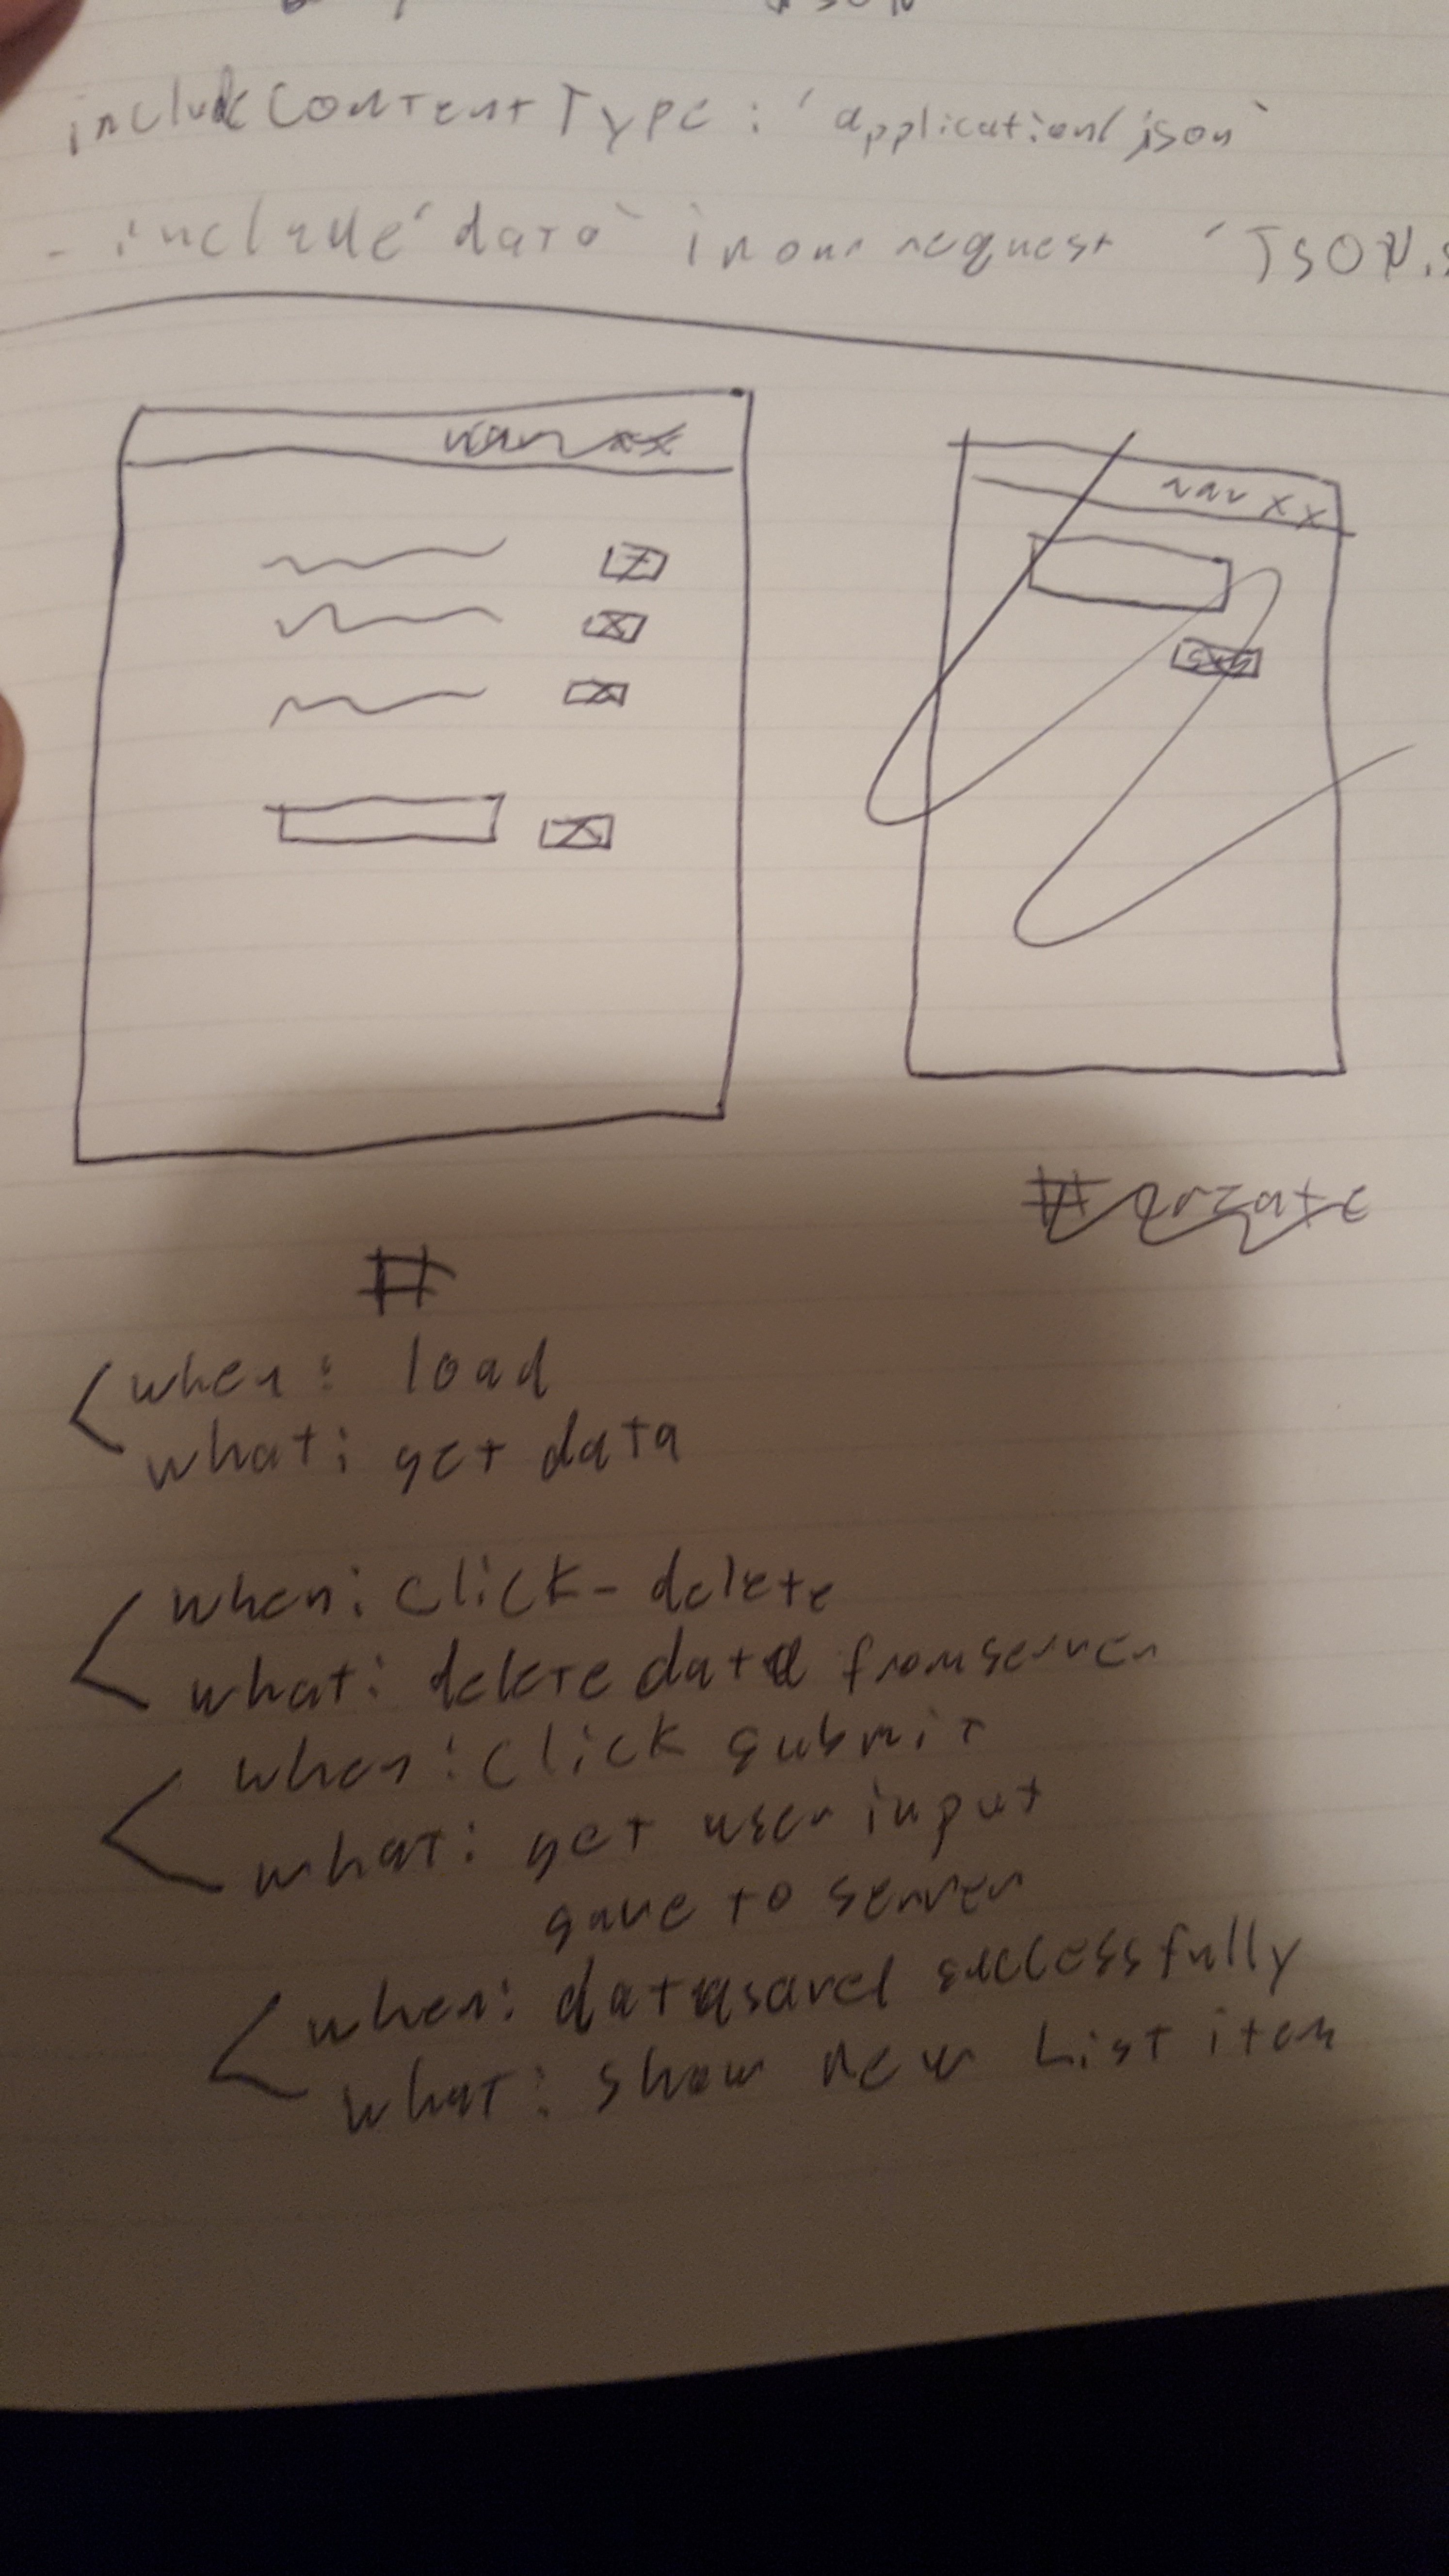 JSON
include ContentType : 'application/json'
- include 'data' in our request 'JSON.s
nav xx
nav xx
# create
#
when: load
what: get data
when: click - delete
what: delete data from server
when: click submit
what: get user input
save to server
when: data saved successfully
what: show new list item